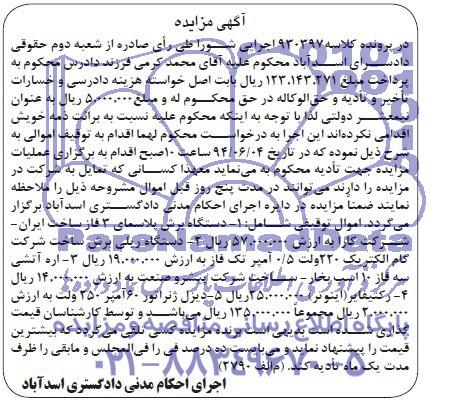 آگهی مزایده
در پرونده کلاسه ۹۳۰۳۹۷ اجرایی شورا طی رأی صادره از شعبه دوم حقوقی
دادسرای اسدآباد محکوم علیه آقای محمد کرمی فرزند دادرس محکوم به
پرداخت مبلغ ۱۲۳.۱۴۳.۲۷۱ ریال بابت اصل خواسته هزینه دادرسی و خسارات
تأخیر و تادیه و حق‌الوکاله در حق محکوم له و مبلغ ۵.۰۰۰.۰۰۰ ریال به عنوان
نیمعشر دولتی لذا با توجه به اینکه محکوم علیه نسبت به برائت ذمه خویش
اقدامی نکرده‌اند این اجرا به درخواست محکوم لهما اقدام به توقیف اموالی به
شرح ذیل نموده که در تاریخ ۹۴/۰۶/۰۴ ساعت ۱۰صبح اقدام به برگزاری عملیات
مزایده جهت تأدیه محکوم به می‌نماید معهذا کسانی که تمایل به شرکت در
مزایده را دارند می‌توانند در مدت پنج روز قبل اموال مشروحه ذیل را ملاحظه
نمایند ضمنا مزایده در دایره اجرای احکام مدنی دادگستری اسدآباد برگزار
می‌گردد. اموال توقیفی شامل: ۱- دستگاه برش پلاسمای ۳ فاز ساخت ایران-
شرکت کارا به ارزش ۵۷.۰۰۰.۰۰۰ ریال ۲- دستگاه ریلی برش ساخت شرکت
گام الکتریک ۲۲۰ولت ۰/۵ آمپر تک فاز به ارزش ۱۹.۰۰۰.۰۰۰ ریال ۳- اره آتشی
سه فاز ۱۰ اسب بخار - ساخت شرکت پیشرو صنعت به ارزش ۱۴.۰۰۰.۰۰۰ ریال
۴- رکتیفایر(اینوتر) ۲۵.۰۰۰.۰۰۰ ریال ۵-دیزل ژنراتور ۶۰آمپر ۲۵۰ ولت به ارزش
۲۰.۰۰۰.۰۰۰ ریال مجموعاً ۱۳۵.۰۰۰.۰۰۰ ریال می‌باشد و توسط کارشناسان قیمت
گذاری شده است تقویمی است برنده مزایده کسی تلقی می‌گردد که بیشترین
قیمت را پیشنهاد نماید و می‌بایست ده درصد فی را فی‌المجلس و مابقی را ظرف
مدت یک ماه تادیه کند. (م‌الف ۲۷۹۰)
اجرای احکام مدنی دادگستری اسدآباد
ParsNamadData
پایگاه اطلاع رسانی مناقصه و مزایده
۰۲۱-۸۸۳۴۹۶۷۰-۵